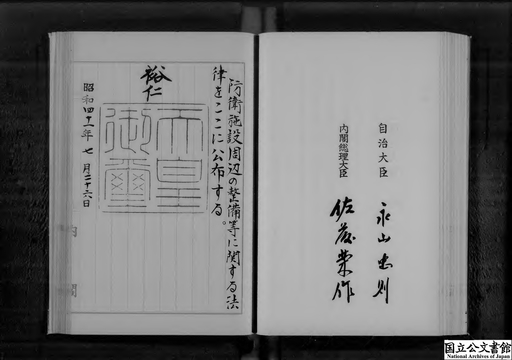 自治大臣 永山忠則
内閣総理大臣 佐藤栄作
防衛施設周辺の整備等に関する法
律をここに公布する。
裕仁
天皇
御璽
昭和四十一年七月二十六日
国立公文書館
National Archives of Japan